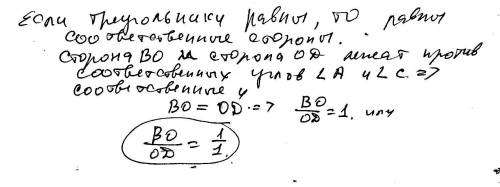 Если треугольники равны, то равны
соответственные стороны.
Сторона BO и сторона OD лежат против
соответственных углов ∠A и ∠C. =>
соответственные
BO = OD => BO/OD = 1. или
BO/OD = 1/1.